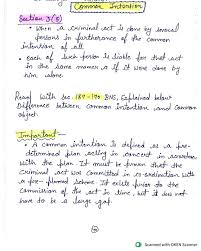 Common Intention
Section 3(5)
• When a criminal act is done by several
persons in furtherance of the common
intention of all
• each of such person is liable for that act
in the same manner as if it were done by
him alone.
Read with sec. 189-190 BNS, Explained below
Difference between common intention and common
object.
Important-
• A common intention is defined as a pre-
determined plan acting in concert in
with the plan. It must be proven that the
criminal act was committed in co-ordination with
a pre-planned scheme. It exists prior to the
commission of the act in time, but it does not
have to be a large gap.
Scanned with OKEN Scanner